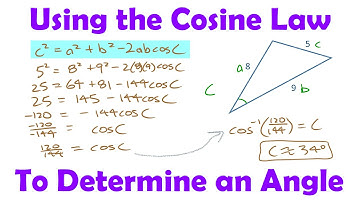 Using the Cosine Law
c² = a² + b² - 2abcosC
5² = 8² + 9² - 2(8)(9)cosC
25 = 64 + 81 - 144cosC
25 = 145 - 144cosC
-120 = - 144cosC
-120/-144 = cosC
120/144 = cosC
a 8
5 c
9 b
C
cos⁻¹(120/144) = C
C ≈ 34°
To Determine an Angle